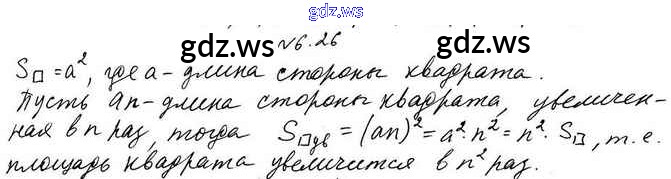 gdz.ws
№6.26
gdz.ws gdz.ws
S□ = a², где a - длина стороны квадрата.
Пусть an - длина стороны квадрата, увеличен-
ная в n раз, тогда S□ув = (an)² = a²·n² = n²·S□, т.е.
площадь квадрата увеличится в n² раз.
gdz.ws gdz.ws
gdz.ws